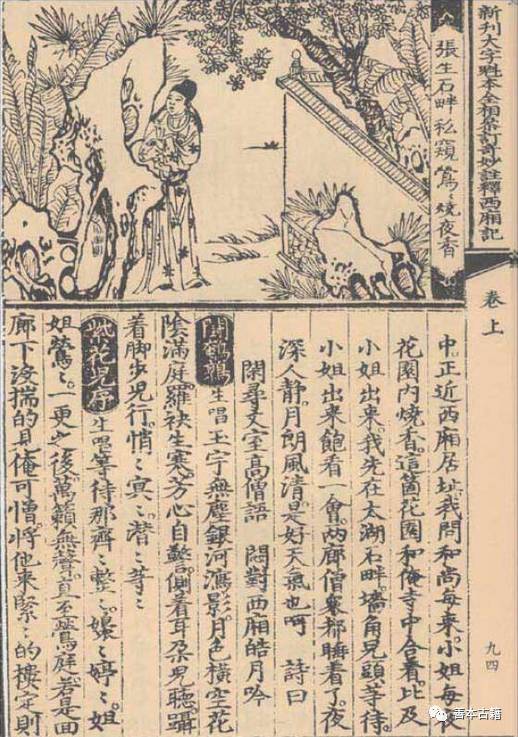 新刊大字魁本全相參訂奇妙註釋西廂記
卷上
九四
張生石畔私窺鶯〻燒夜香
中。正近西廂居址。我問和尚每來。小姐每夜
花園內燒香。這箇花園和俺寺中合着。比及
小姐出來。我先在太湖石畔。墻角兒頭。等待。
小姐出來。飽看一會。两廊僧衆都睡着了。夜
深人靜。月朗風清。是好天氣也呵 詩曰
閑尋丈室高僧語 悶對西廂皓月吟
鬪鵪鶉 生唱玉宇無塵。銀河瀉影。月色橫空。花
陰滿庭。羅袂生寒。芳心自警。側着耳朵兒聽。躡
着脚步兒行。悄〻冥〻。潛〻等〻
紫花兒序 生唱等待那齊〻整〻。嬝〻婷〻。姐
姐鶯〻。一更之後。萬籟無聲。直至鶯庭。若是囬
廊下沒揣的見俺可憎。將他來緊〻的摟定則
善本古籍